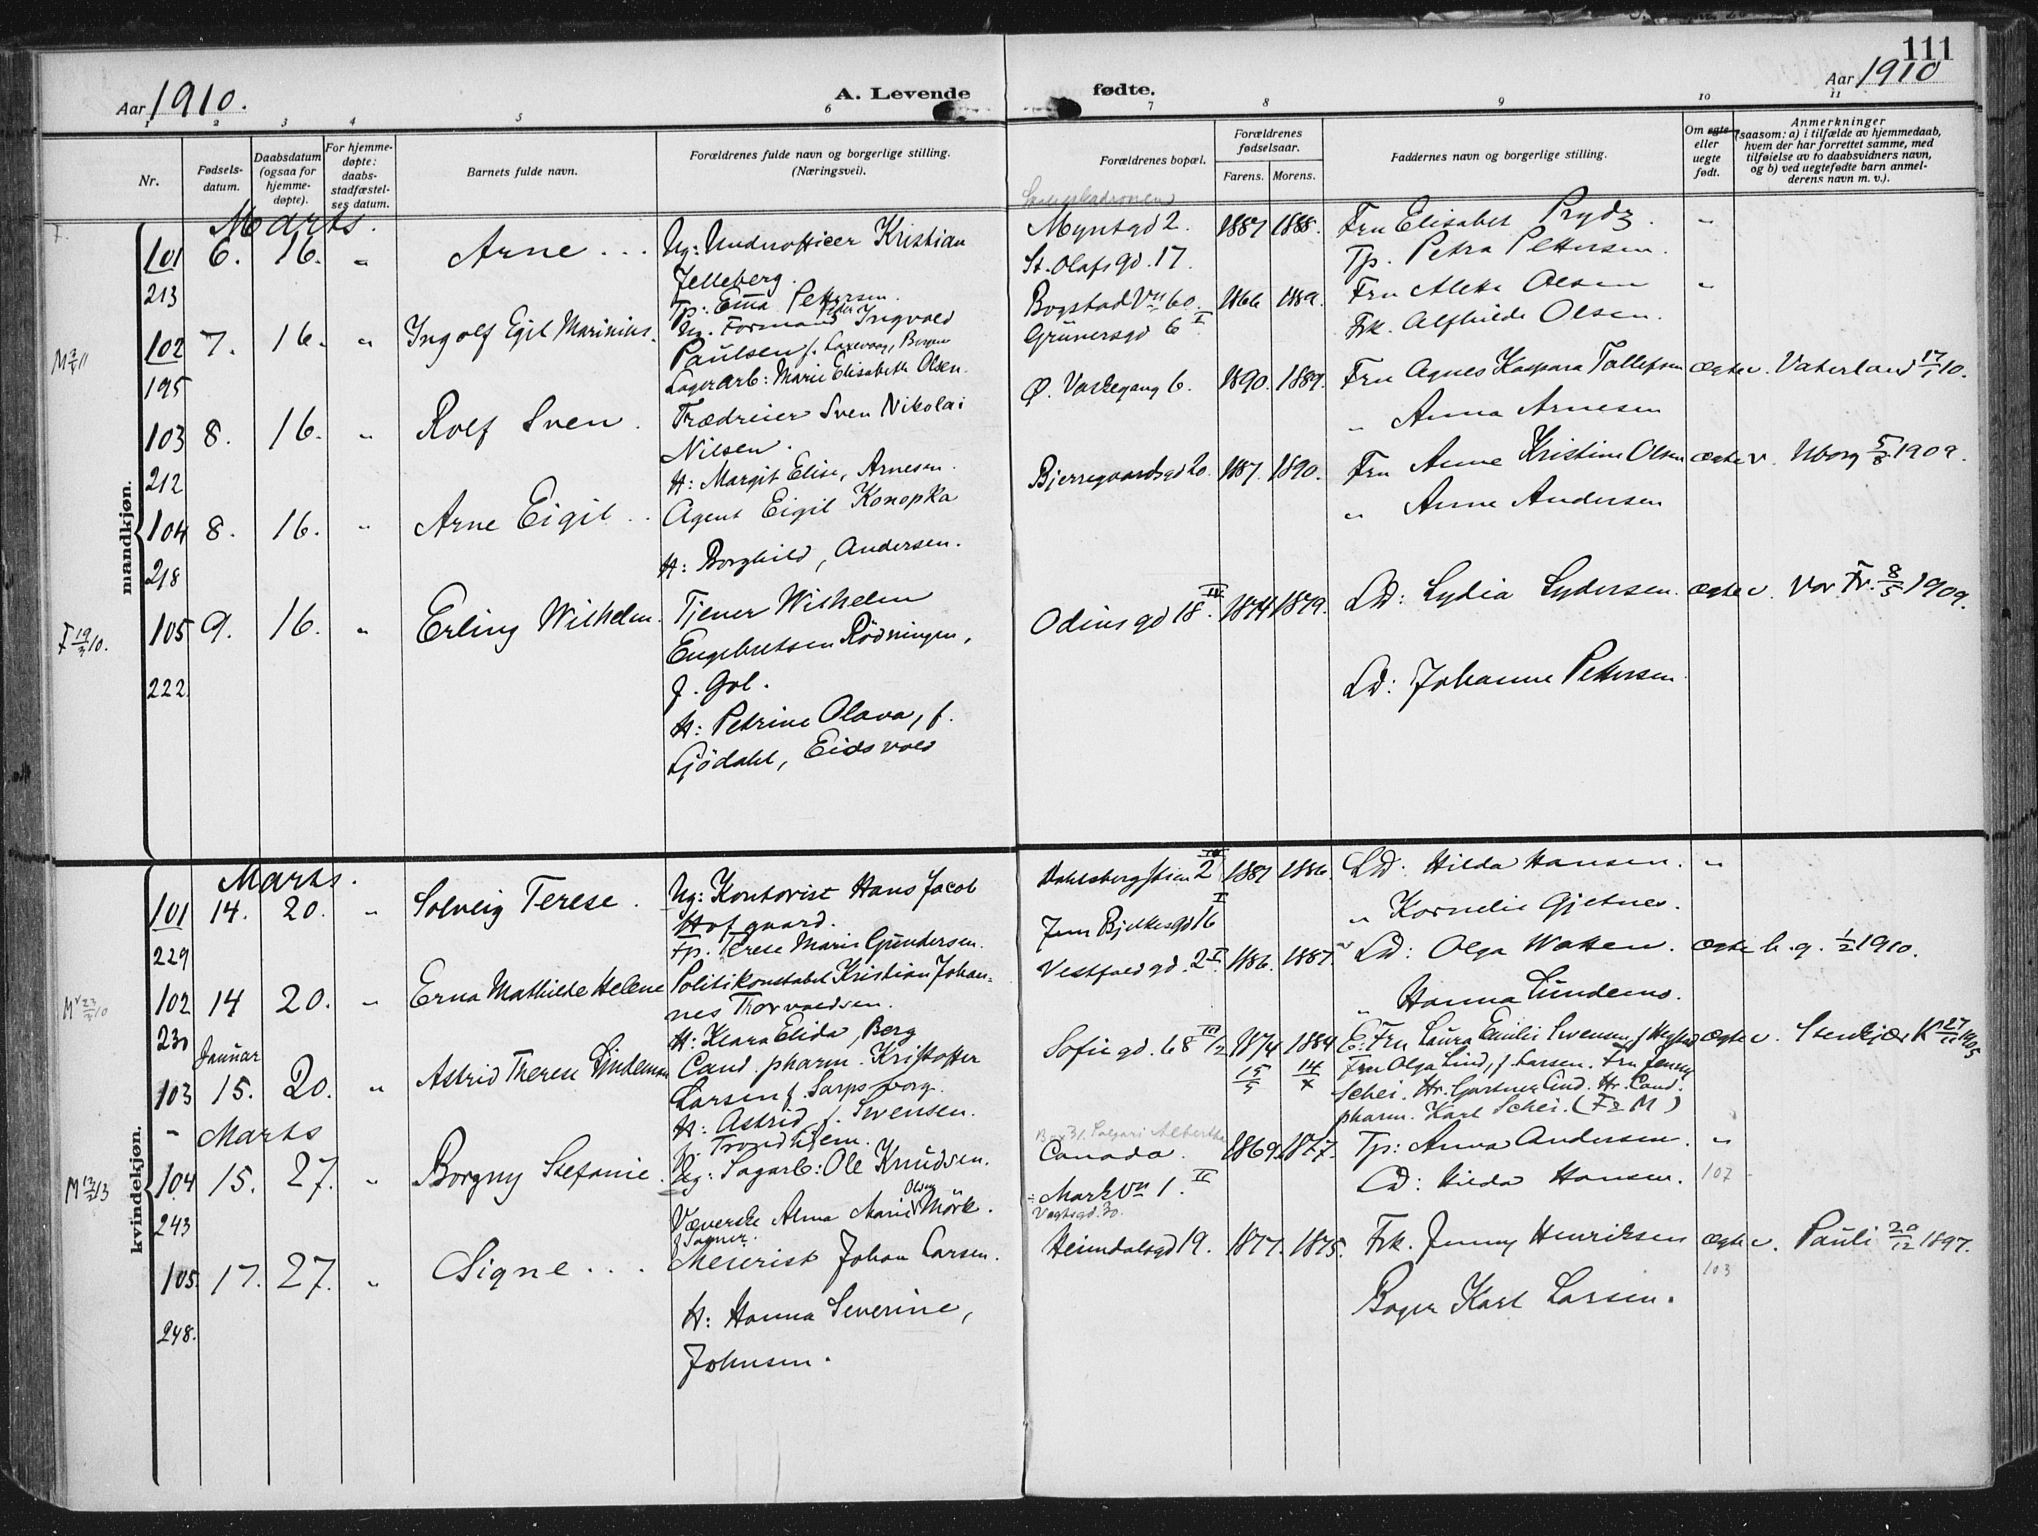 111
Aar 1910.
A. Levende
fødte.
Aar 1910
1 2 3 4 5 6 7 8 9 10 11
Nr.
Fødsels-
datum.
Daabsdatum
(ogsaa for
hjemme-
døpte).
For hjemme-
døpte:
daabs-
stadfæstel-
ses datum.
Barnets fulde navn.
Forældrenes fulde navn og borgerlige stilling.
(Næringsvei).
Forældrenes bopæl.
Forældrenes
fødselsaar.
Farens. Morens.
Faddernes navn og borgerlige stilling.
Om egte
eller
uegte
født.
Anmerkninger
(saasom: a) i tilfælde av hjemmedaab,
hvem der har forrettet samme, med
tilføielse av to daabsvidners navn,
og b) ved uegtefødte barn anmel-
derens navn m. v.).
mandkjøn.
Marts.
101 6. 16. „ Arne
213
Ug: Underofficer Kristian
Jelleberg.
Tp: Emma Pettersen.
Myntgd 2.
St. Olafs gd. 17.
1887 1888.
Fru Elisabet Prydz. „
Tp. Petra Pettersen.
M 11
102 7. 16. „ Ingolf Egil Marinius.
195
Ug. Formand Ingvald
Paulsen f. Laxevaag, Bergen
Lagerarb: Marie Elisabeth Olsen.
Bogstadvn 60.
Grünersgd 6 I
1866 1889.
Fru Olsen „
Frk. Alfhilde Olsen.
103 8. 16. „ Rolf Sven.
212
Trædreier Sven Nikolai
Nilsen.
H: Margit Elise, Arnesen.
Ø. Vaskegang 6.
1890. 1889.
Fru Agnes Kaspara Tollefsen
„ Anna Arnesen
ægte v. Vaterland 17/1 10.
104 8. 16. „ Arne Eigil
218
Agent Eigil Konopka
H: Borghild, Andersen.
Bjerregaardsgd 20. 1887. 1890.
Fru Anne Kristine Olsen
„ Anne Andersen
ægte v. Uborg 5/8 1909.
F 19/3 10.
105 9. 16. „ Erling Wilhelm.
222
Tjener Wilhelm
Engebretsen Rødningen,
f. Gol.
H: Petrine Olava, f.
Gjødahl, Eidsvold
Odins gd 18 IV. 1874 1879.
Ld: Lydia Lydersen.
Ld: Johanne Pettersen
ægte v. Vor Fr. 8/5 1909.
kvindekjøn.
Marts.
101 14. 20. „ Solveig Terese.
229
Ug: Kontorist Hans Jacob
Hofgaard.
Fp. Terese Marie Gundersen.
Dahlsbergstien 2 IV
Jens Bjelkesgd 16 I
1887 1886.
Ld: Hilda Hansen. „
„ Kornelie Gjetnes.
102 14 20. „ Erna Mathilde Helene
230
Politikonstabel Kristian Johan-
nes Thorvaldsen.
H: Klara Elida, Berg
Vestfold gd. 2 I. 1886. 1887.
Ld: Olga Watten.
„ Hanna
ægte b. g. 1/2 1910.
Januar
103 15. 20. „ Astrid Therese Lindeman
Cand. pharm. Kristoffer
Larsen f. Sarpsborg.
H: Astrid f. Svensen.
f. Trondhjem.
Sofie gd. 68 III 1/2 1874 1884
15/5 14/X
E. Fru Laura Emilie Svensen,
Fru Olga Lind, f. Larsen. Fru Jenny
Schei. Hr. Gartner Lind. Hr. Cand.
pharm. Karl Schei. (F2 M)
ægte v. Stenkjær K 27/11 1905
Marts
104 15. 27. „ Borgny Stefanie.
243
Ug: Sagarb: Ole Knudsen.
Væverske Alma Marie Olsen Mörk.
f Sagner.
Canada.
Markvn 1. II
Vogtsgd. 30.
1869. 1877.
Tp: Anna Andersen. „
Ld: Hilda Hansen. 107
105. 17. 27. „ Signe
248.
Meierist Johan Larsen.
H: Hanna Severine,
Johnsen.
Heimdalsgd 19. 1877. 1875.
Frk. Jenny Henriksen
Bager Karl Larsen.
ægte v. Pauli 20/12 1897.
103